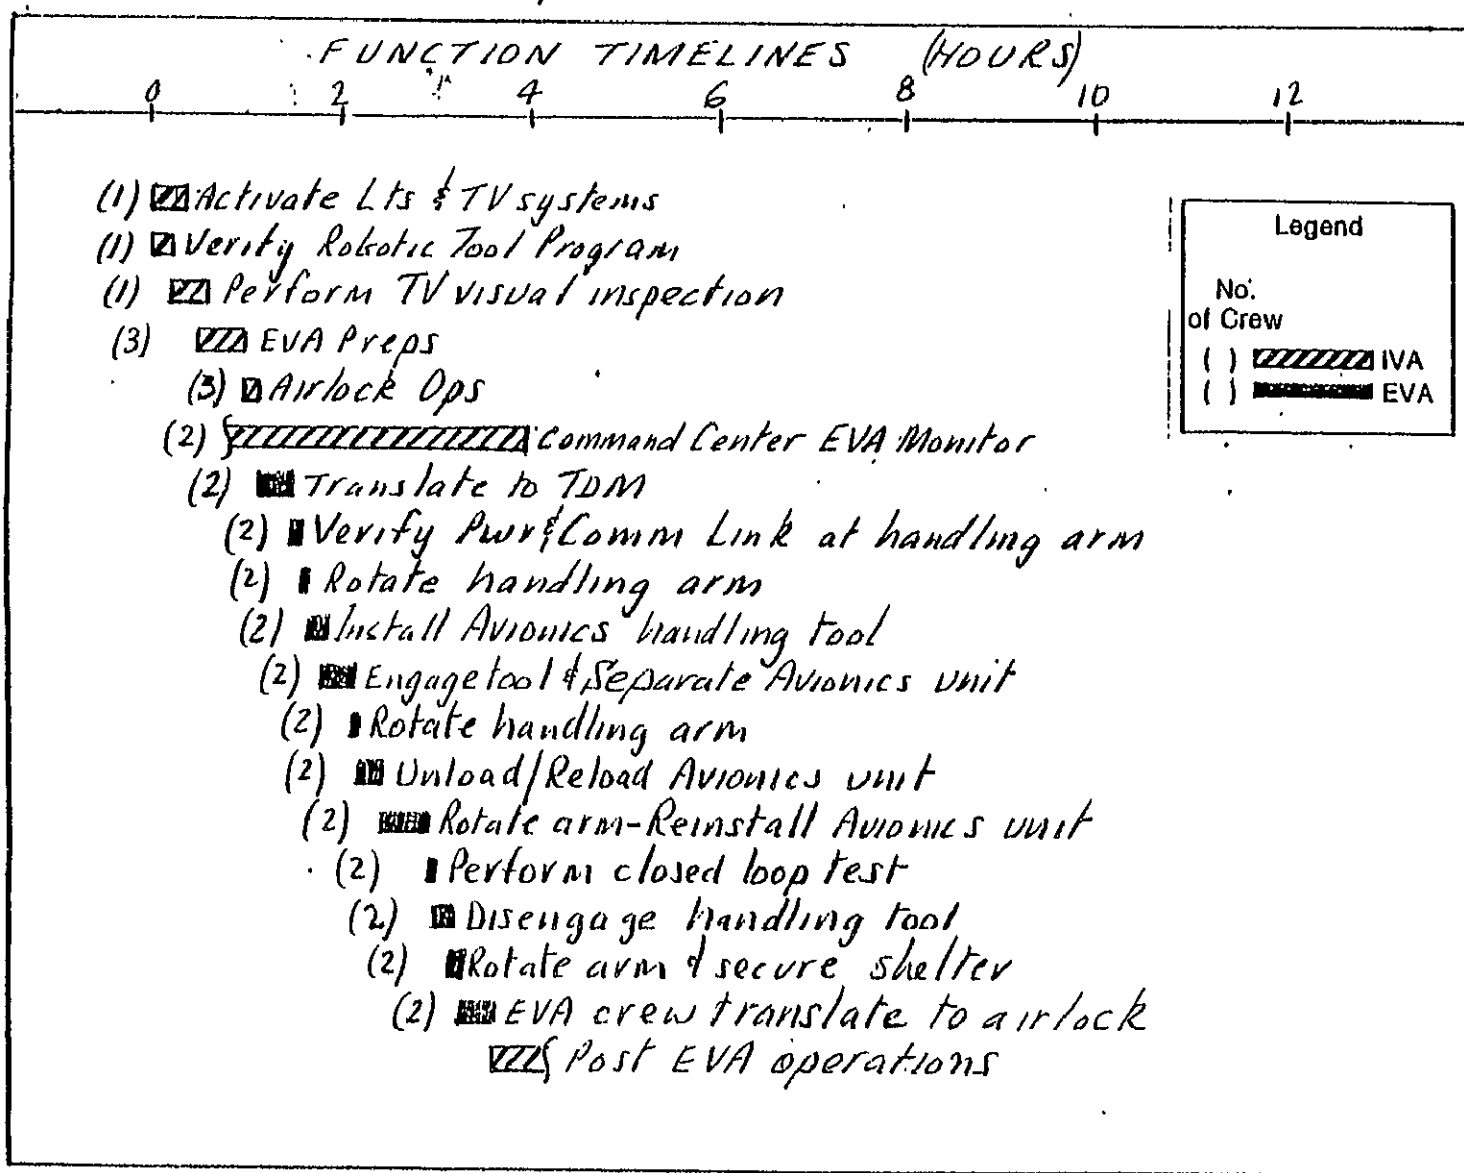 FUNCTION TIMELINES (HOURS)
0 2 4 6 8 10 12
(1) Activate Lts & TV systems
(1) Verify Robotic Tool Program
(1) Perform TV visual inspection
(3) EVA Preps
(3) Airlock Ops
(2) Command Center EVA Monitor
(2) Translate to TDM
(2) Verify Pwr & Comm Link at handling arm
(2) Rotate handling arm
(2) Install Avionics handling tool
(2) Engage tool & Separate Avionics unit
(2) Rotate handling arm
(2) Unload/Reload Avionics unit
(2) Rotate arm-Reinstall Avionics unit
(2) Perform closed loop test
(2) Disengage handling tool
(2) Rotate arm & secure shelter
(2) EVA crew translate to airlock
Post EVA operations
Legend
No.
of Crew
( ) IVA
( ) EVA